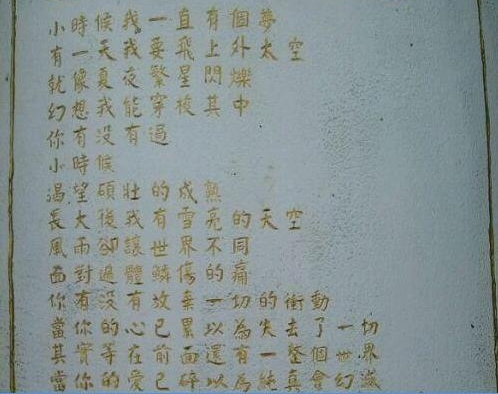 小時候我一直有個夢
有一天我要飛上外太空
就像夏夜繁星閃爍
幻想我能穿梭其中
你有沒有過
小時候
渴望碩壯的成熟
長大後我有雪亮的天空
風雨卻讓世界不同
面對過體鱗傷的痛
你有沒有放棄一切的衝動
當你的心已累以為失去了一切
其實等在前面還有一整個世界
當你的愛已碎以為純真會幻滅